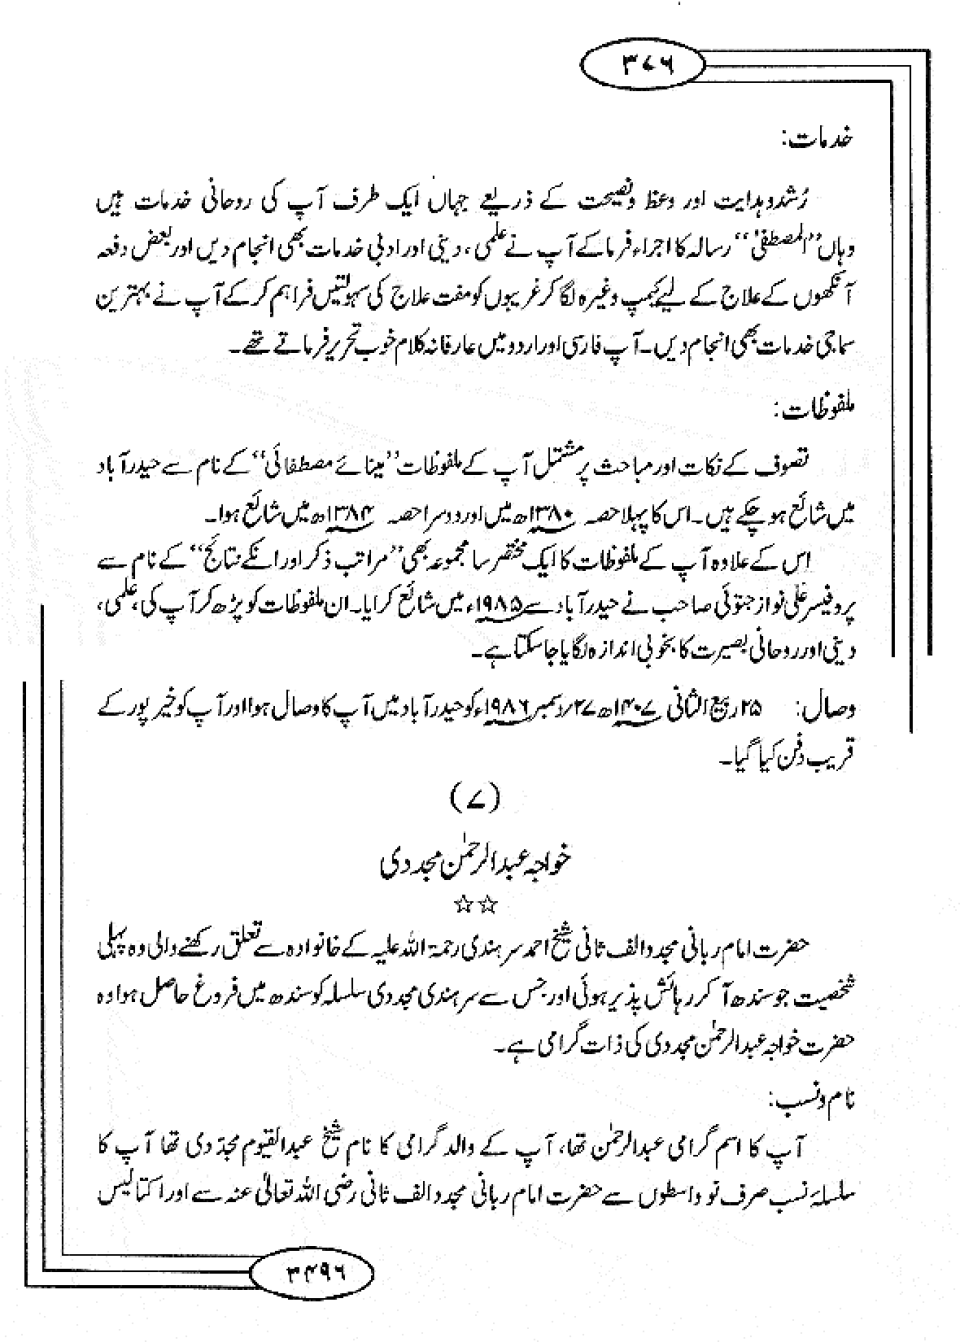 ۳۷۶
خدمات:
رُشد و ہدایت اور وعظ و نصیحت کے ذریعے جہاں ایک طرف آپ کی روحانی خدمات ہیں
وہاں ’’المصطفیٰ‘‘ رسالہ کا اجراء فرما کے آپ نے علمی، دینی اور ادبی خدمات بھی انجام دیں اور بعض دفعہ
آنکھوں کے علاج کے لیے کیمپ وغیرہ لگا کر غریبوں کو مفت علاج کی سہولتیں فراہم کر کے آپ نے بہترین
سماجی خدمات بھی انجام دیں۔ آپ فارسی اور اردو میں عارفانہ کلام خوب تحریر فرماتے تھے۔
ملفوظات:
تصوف کے نکات اور مباحث پر مشتمل آپ کے ملفوظات ’’مینائے مصطفائی‘‘ کے نام سے حیدرآباد
میں شائع ہو چکے ہیں۔ اس کا پہلا حصہ ۱۳۸۰ھ میں اور دوسرا حصہ ۱۳۸۴ھ میں شائع ہوا۔
اس کے علاوہ آپ کے ملفوظات کا ایک مختصر سا مجموعہ بھی ’’مراتب ذکر اور انکے نتائج‘‘ کے نام سے
پروفیسر علی نواز جتوئی صاحب نے حیدرآباد سے ۱۹۸۵ء میں شائع کرایا۔ ان ملفوظات کو پڑھ کر آپ کی، علمی،
دینی اور روحانی بصیرت کا بخوبی اندازہ لگایا جا سکتا ہے۔
وصال: ۲۵ ربیع الثانی ۱۴۰۷ھ ۲۷ دسمبر ۱۹۸۶ء کو حیدرآباد میں آپ کا وصال ہوا اور آپ کو خیرپور کے
قریب دفن کیا گیا۔
(۷)
خواجہ عبدالرحمٰن مجددی
☆☆
حضرت امام ربانی مجدد الف ثانی شیخ احمد سرہندی رحمۃ اللہ علیہ کے خانوادہ سے تعلق رکھنے والی وہ پہلی
شخصیت جو سندھ آ کر رہائش پذیر ہوئی اور جس سے سرہندی مجددی سلسلہ کو سندھ میں فروغ حاصل ہوا وہ
حضرت خواجہ عبدالرحمٰن مجددی کی ذات گرامی ہے۔
نام و نسب:
آپ کا اسم گرامی عبدالرحمٰن تھا، آپ کے والد گرامی کا نام شیخ عبدالقیوم مجدّدی تھا آپ کا
سلسلۂ نسب صرف نو واسطوں سے حضرت امام ربانی مجدد الف ثانی رضی اللہ تعالیٰ عنہ سے اور اکتالیس
۳۴۹۶